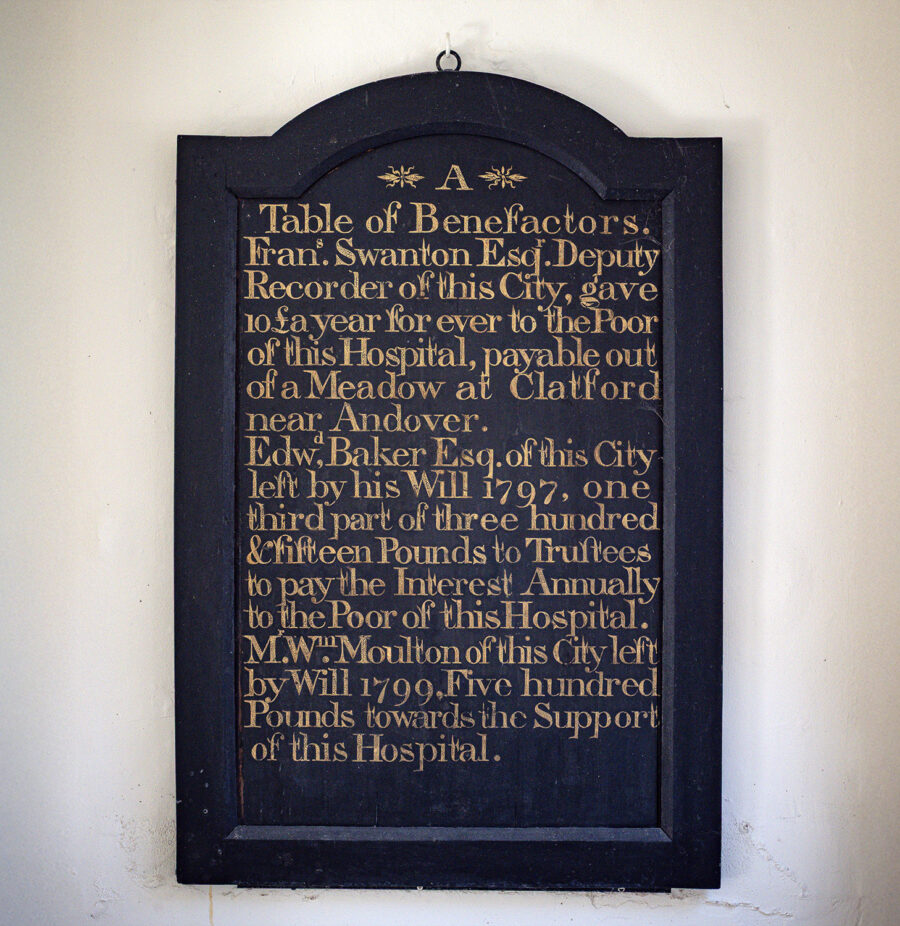 A
Table of Benefactors.
Fran.ˢ Swanton Esq.ʳ Deputy
Recorder of this City, gave
10£ a year for ever to the Poor
of this Hospital, payable out
of a Meadow at Clatford
near Andover.
Edw.ᵈ, Baker Esq. of this City
left by his Will 1797, one
third part of three hundred
& fifteen Pounds to Truſtees
to pay the Interest Annually
to the Poor of this Hospital.
M.ʳ W.ᵐ Moulton of this City left
by Will 1799, Five hundred
Pounds towards the Support
of this Hospital.